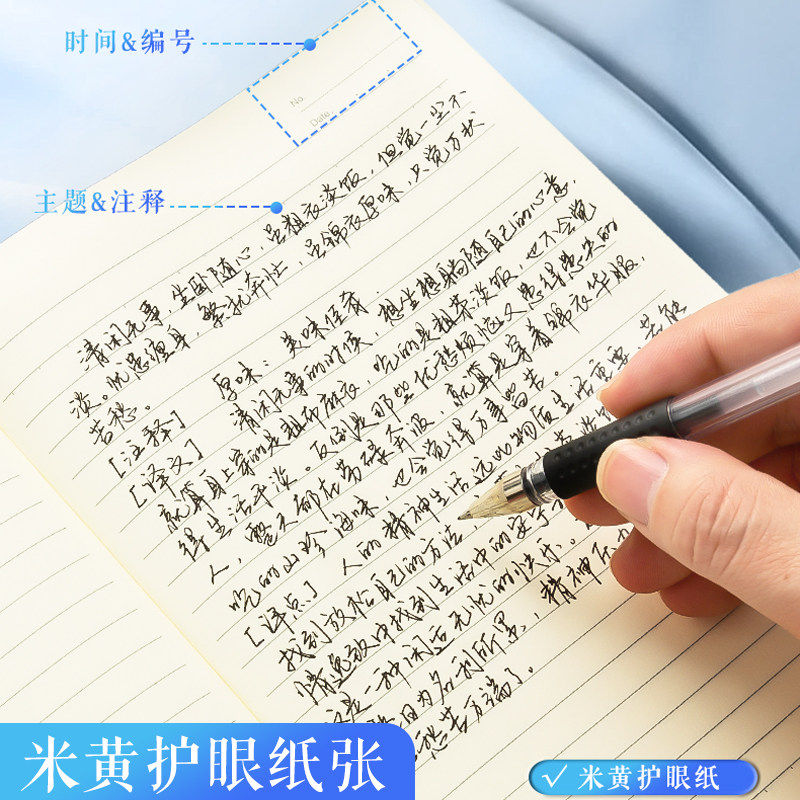 时间&编号
No.
Date.
主题&注释
清闲无事，坐卧随心，虽粗衣淡饭，但觉一尘不
淡。忧患缠身，繁扰奔忙，虽锦衣厚味，只觉万状
苦愁。
[注释] 厚味：美味佳肴。
[译文] 清闲无事的时候，想坐想躺随自己的心意，
就算身上穿的是粗布麻衣，吃的是粗茶淡饭，也不会觉
得生活平淡。反倒是那些忧愁烦恼又患得患失的
人，整天都在劳碌奔波，就算是穿着锦衣华服，
吃的山珍海味，也会觉得万事皆苦。
[评点] 人的精神生活远比物质生活重要，若能
找到放松自己的方法
情逸致中找到生活中的安宁
这是一种闲适无忧的快乐。
因为名利所累，精神压力
愁苦万端了。
米黄护眼纸张
米黄护眼纸